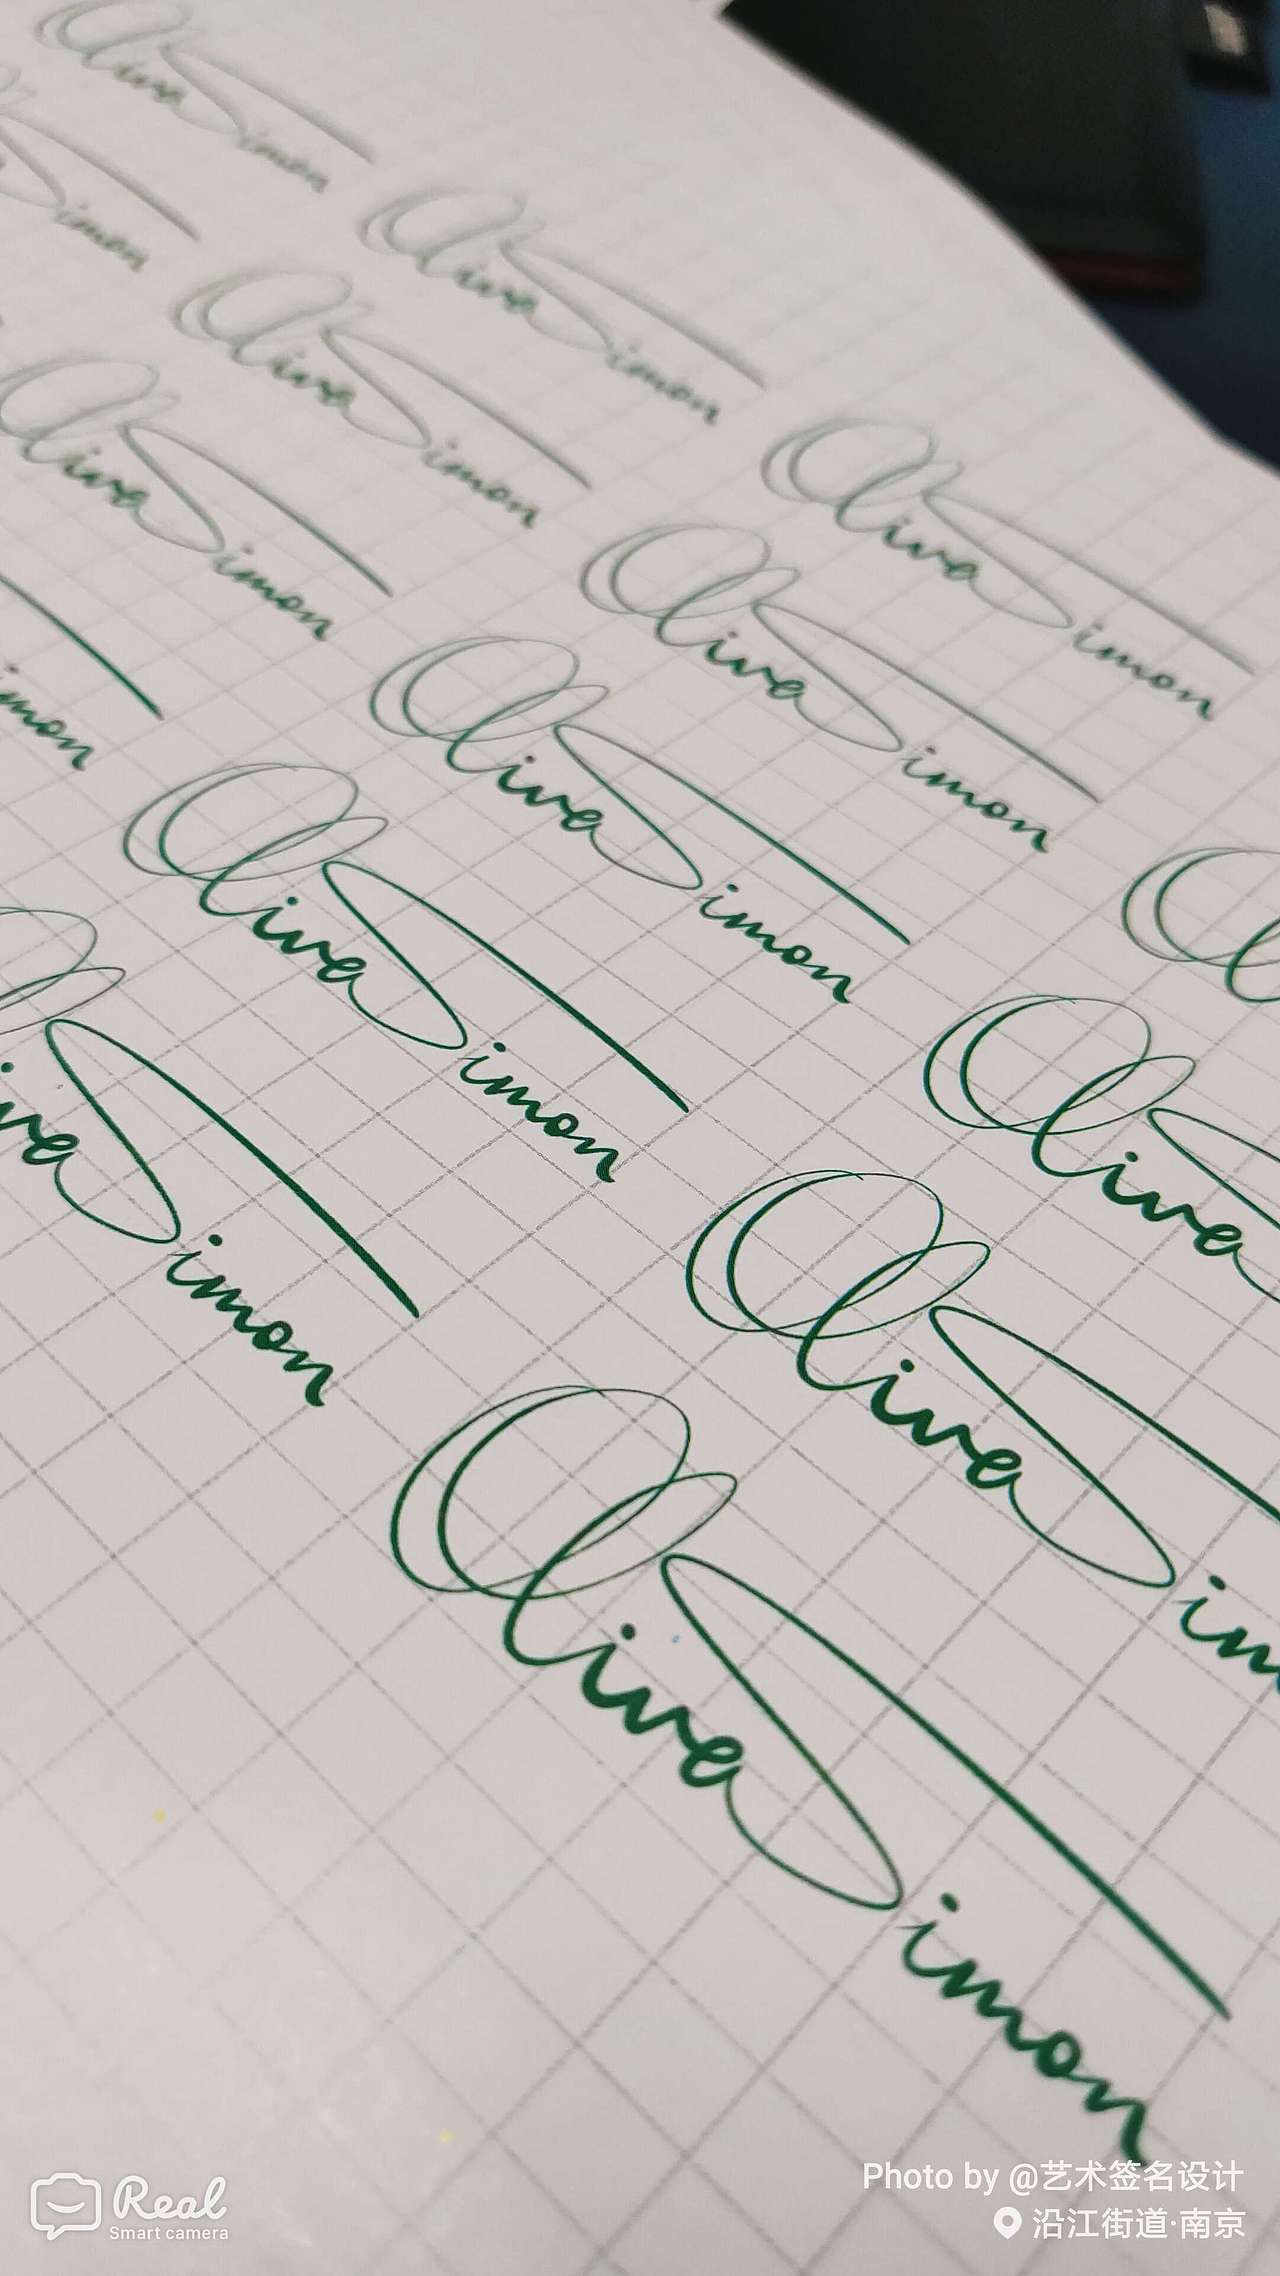 Oliva Simon
Oliva Simon
imon
Oliva Simon
Oliva Simon
Oliva Simon
Oliva Simon
Oliva Simon
imon
Oliva Simon
Oliva Simon
Oliva
iva Simon
Oliva Sim
Oliva Simon
Real
Smart camera
Photo by @艺术签名设计
沿江街道·南京